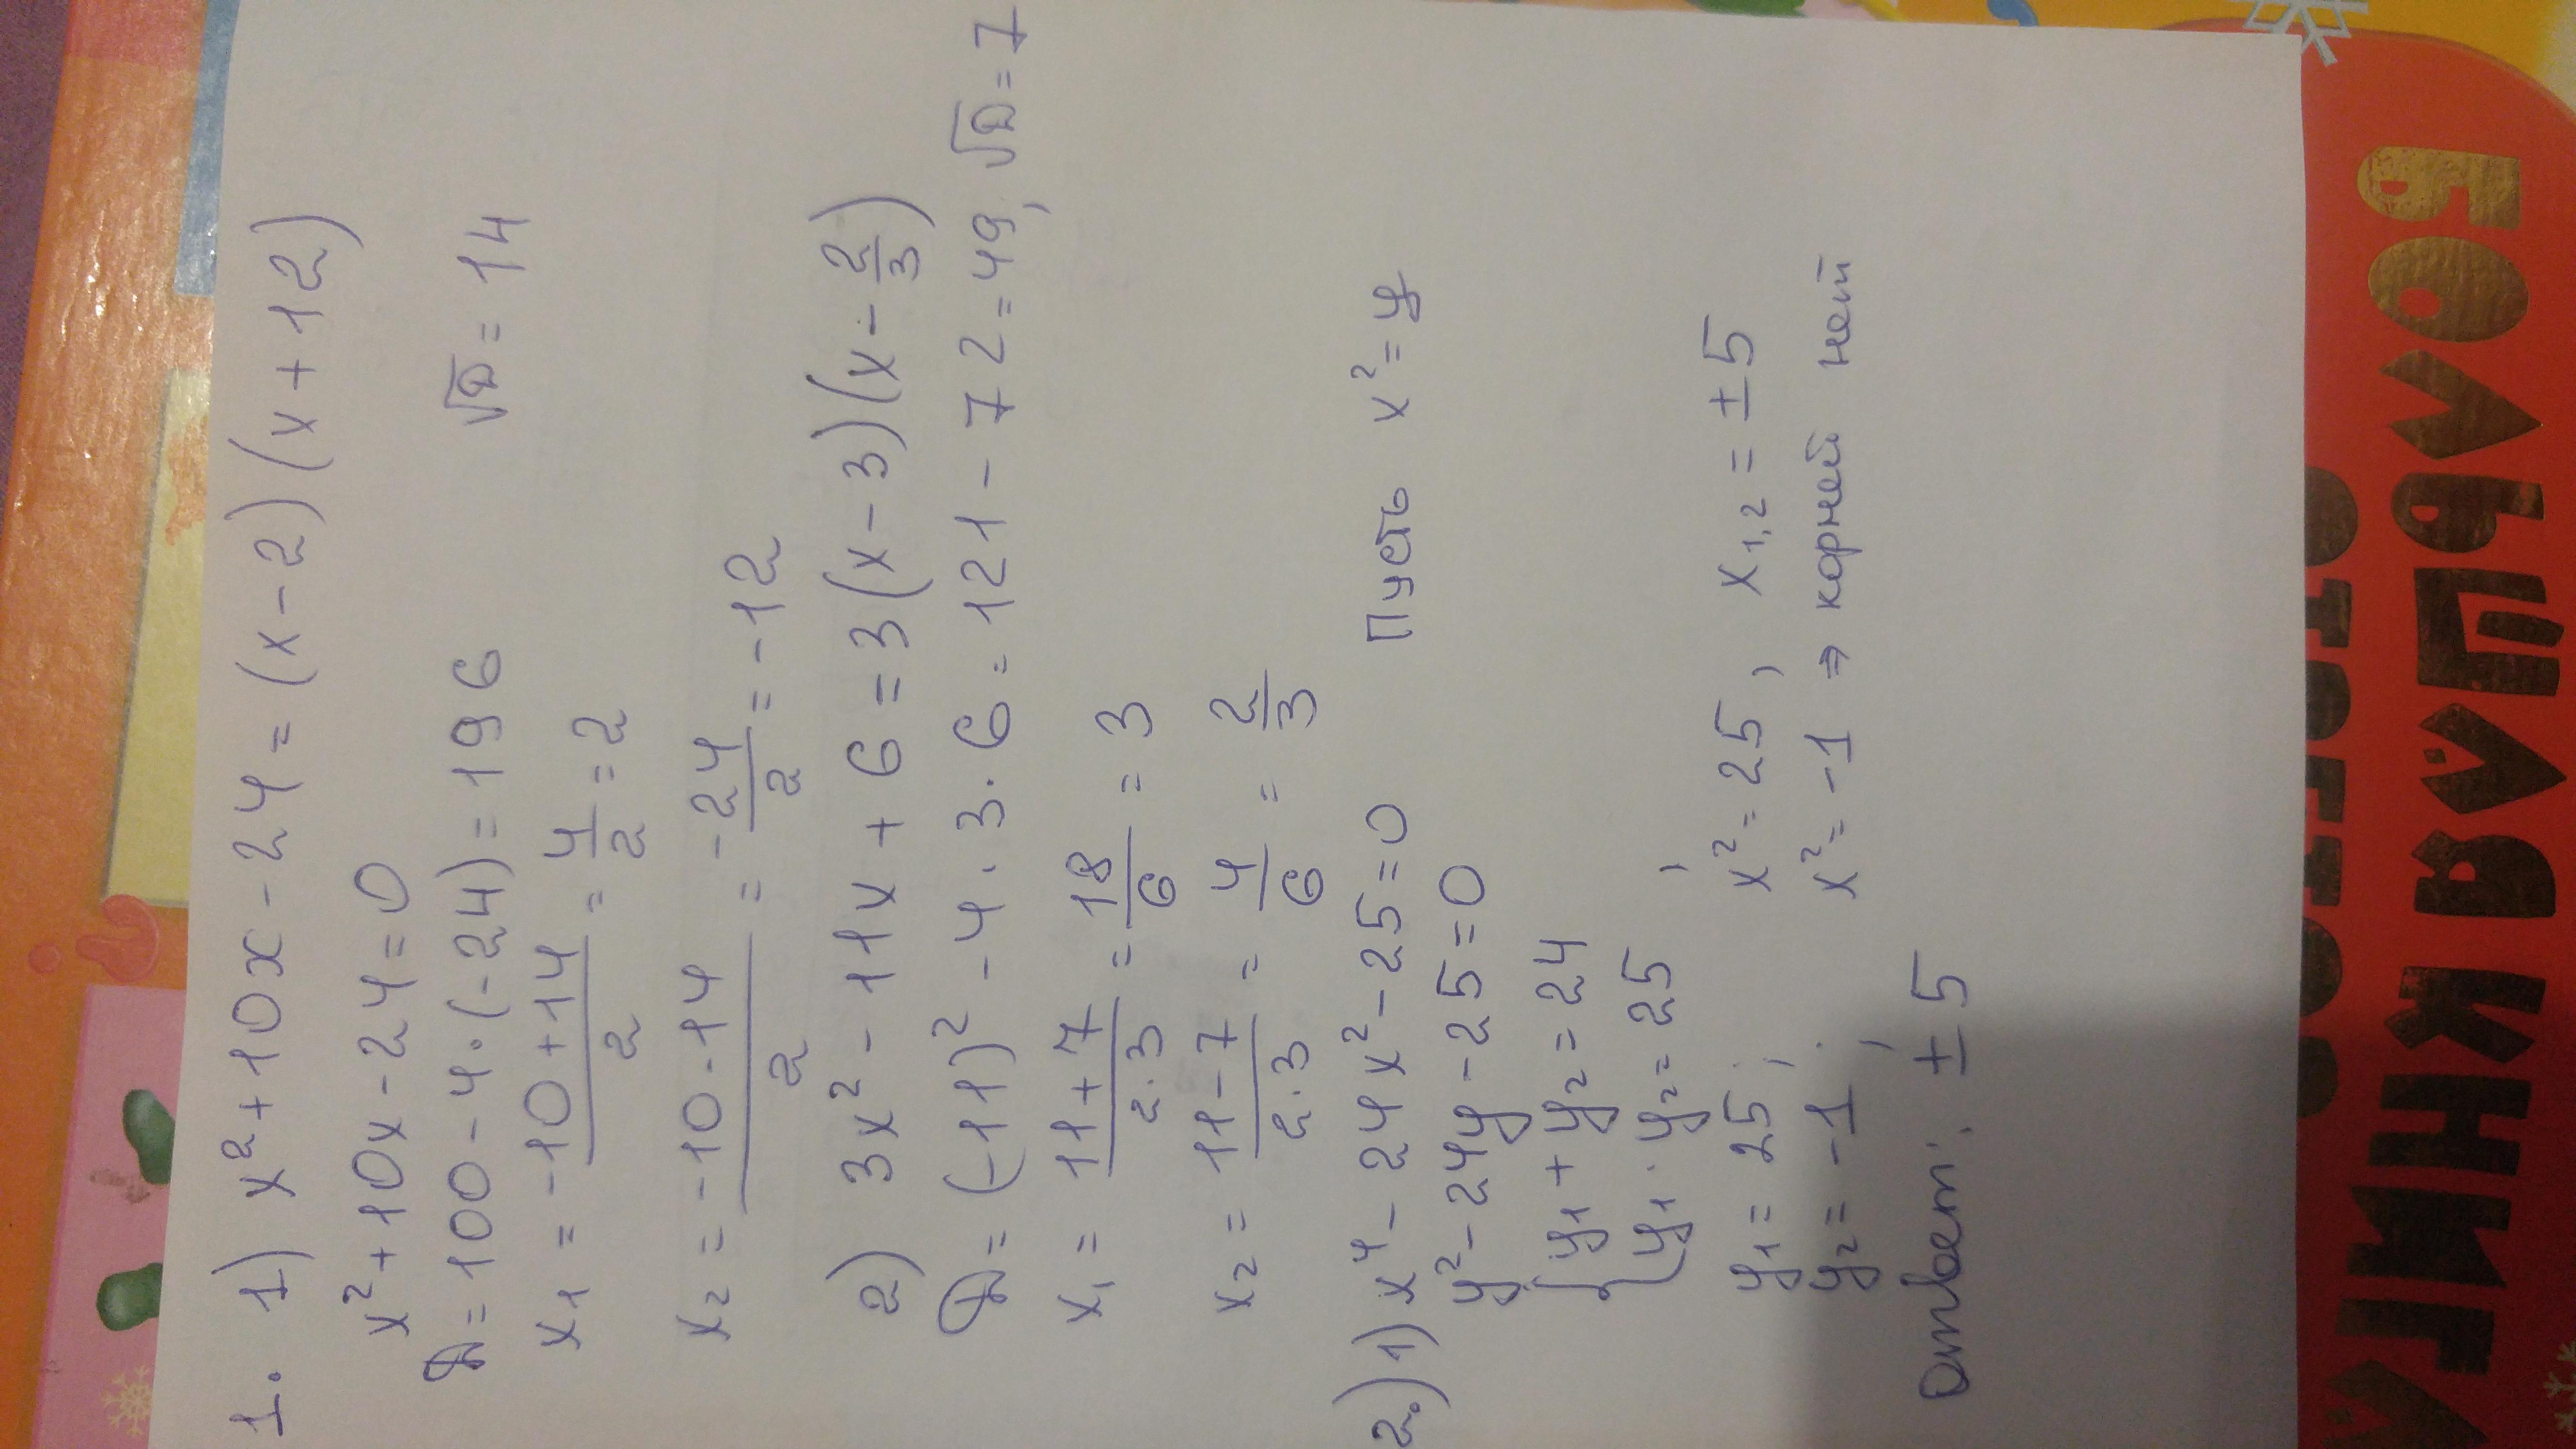 1. 1) x²+10x-24=(x-2)(x+12)
x²+10x-24=0
D=100-4·(-24)=196 √D=14
x₁=(-10+14)/2=4/2=2
x₂=(-10-14)/2=-24/2=-12
2) 3x²-11x+6=3(x-3)(x-2/3)
D=(-11)²-4·3·6=121-72=49, √D=7
x₁=(11+7)/(2·3)=18/6=3
x₂=(11-7)/(2·3)=4/6=2/3
2.) 1) x⁴-24x²-25=0 Пусть x²=y
y²-24y-25=0
{y₁+y₂=24
{y₁·y₂=25,
y₁=25; x²=25, x₁,₂=±5
y₂=-1; x²=-1 ⇒ корней нет
Ответ: ±5
БОЛЬШАЯ КНИГА